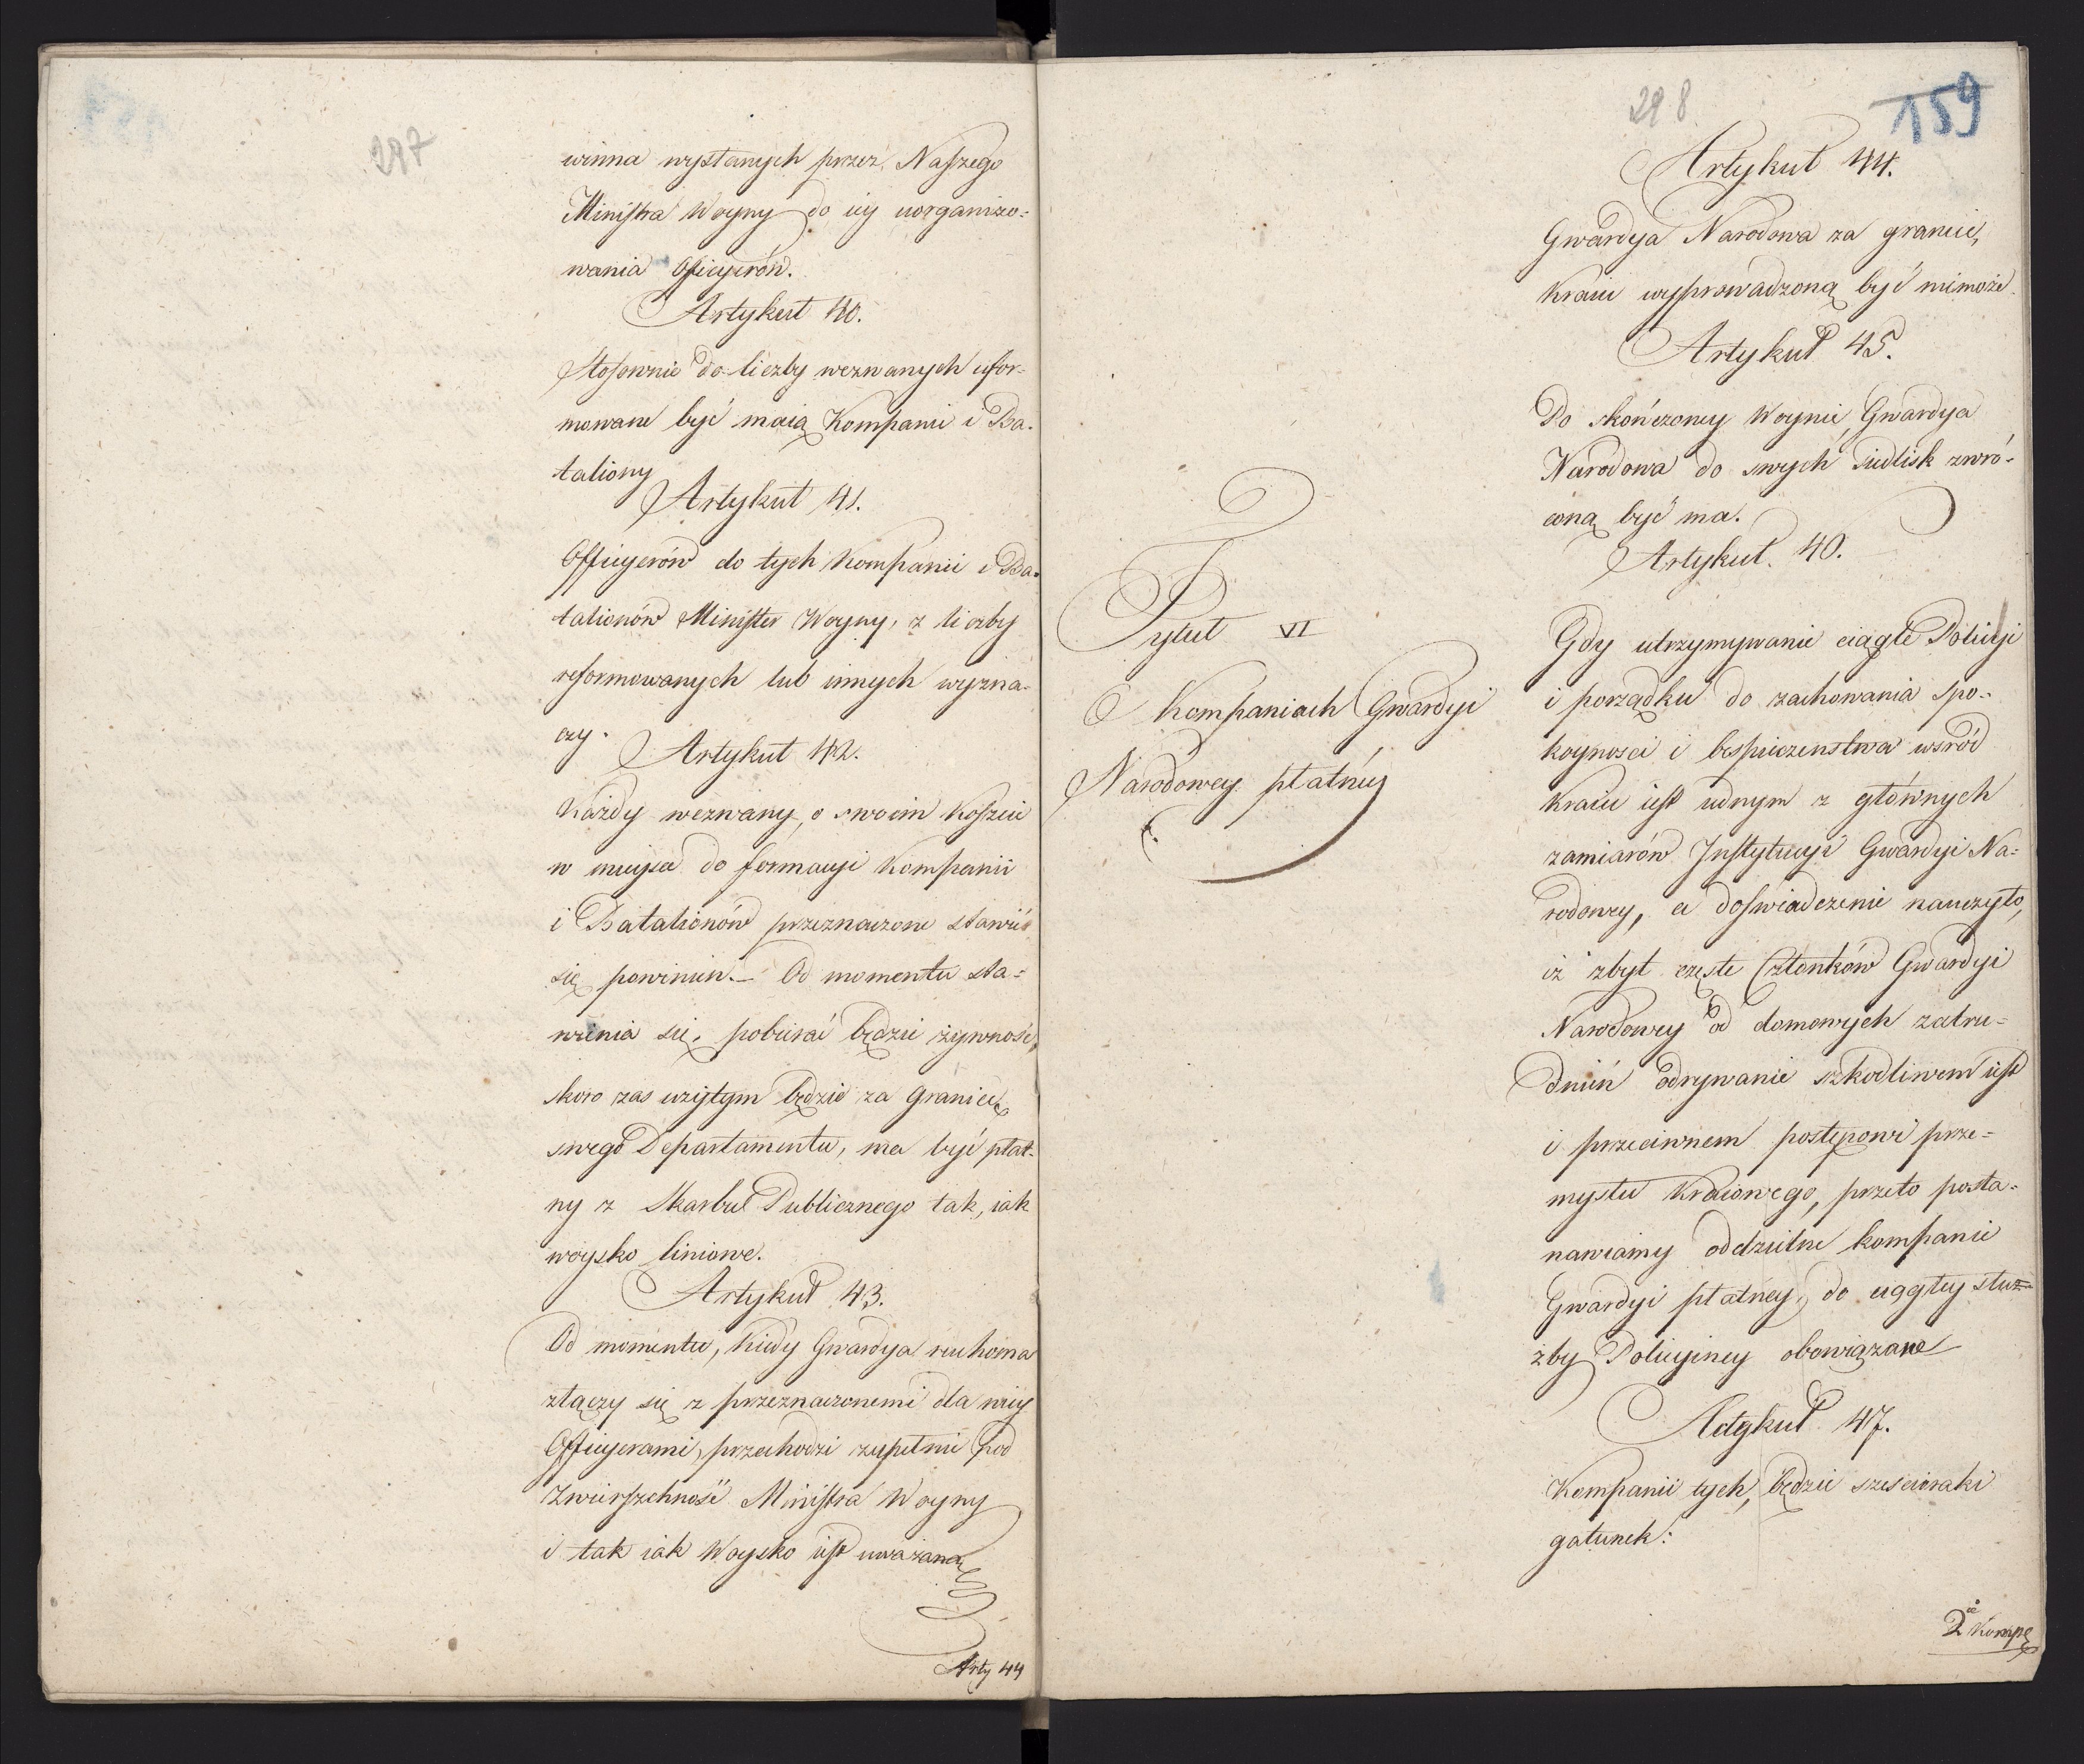 297
winna wysłanych przez Naszego
Ministra Woyny do iey uorganizo=
wania Officyerów.
Artykuł 40.
Stosownie do liczby wezwanych ufor-
mowane być maią Kompanie i Ba-
taliony
Artykuł 41.
Officyerów do tych Kompanii i Ba-
talionów Minister Woyny, z liczby
reformowanych lub innych wyzna-
czy.
Artykuł 42.
Każdy wezwany, o swoim Koszcie
w mieysce do formacyi Kompanii
i Batalionów przeznaczone stawić
się powinien.— Od momentu sta=
wienia się, pobierać będzie żywność,
skoro zas użytym będzie za Granicę
swego Departamentu, ma być płat-
ny z Skarbu Publicznego tak, iak
woysko liniowe.
Artykuł 43.
Od momentu, kiedy Gwardya ruchoma
złączy się z przeznaczonemi dla niey
Officyerami, przechodzi zupełnie pod
Zwierzchność Ministra Woyny
i tak iak Woysko iest uważana
Arty 44
298
159
Artykuł 44.
Gwardya Narodowa za granicę,
Kraiu wyprowadzoną być niemoże
Artykuł 45.
Po skończoney Woynie, Gwardya
Narodowa do swych siedlisk zwró-
coną być ma.
Artykuł. 46.
Tytuł VI
O Kompaniach Gwardyi
Narodowey płatnéy
Gdy utrzymywanie ciągłe Policyi
i porządku do zachowania spo-
koynosci i bespieczenstwa wsród
Kraiu iest iednym z głównych
zamiarów Instytucyi Gwardyi Na=
rodowey, a doświadczenie nauczyło,
iż zbyt częste Członków Gwardyi
Narodowey od domowych zatru-
dnień odrywanie szkodliwem iest
i przeciwnem postępowi prze=
mysłu Kraiowego, przeto posta-
nawiamy oddzielne kompanie
Gwardyi płatney, do ciągłey słuz=
żby Policyiney obowiązane
Actykuł 47.
Kompanii tych, będzie sześcioraki
gatunek:
2ͣ Kompę